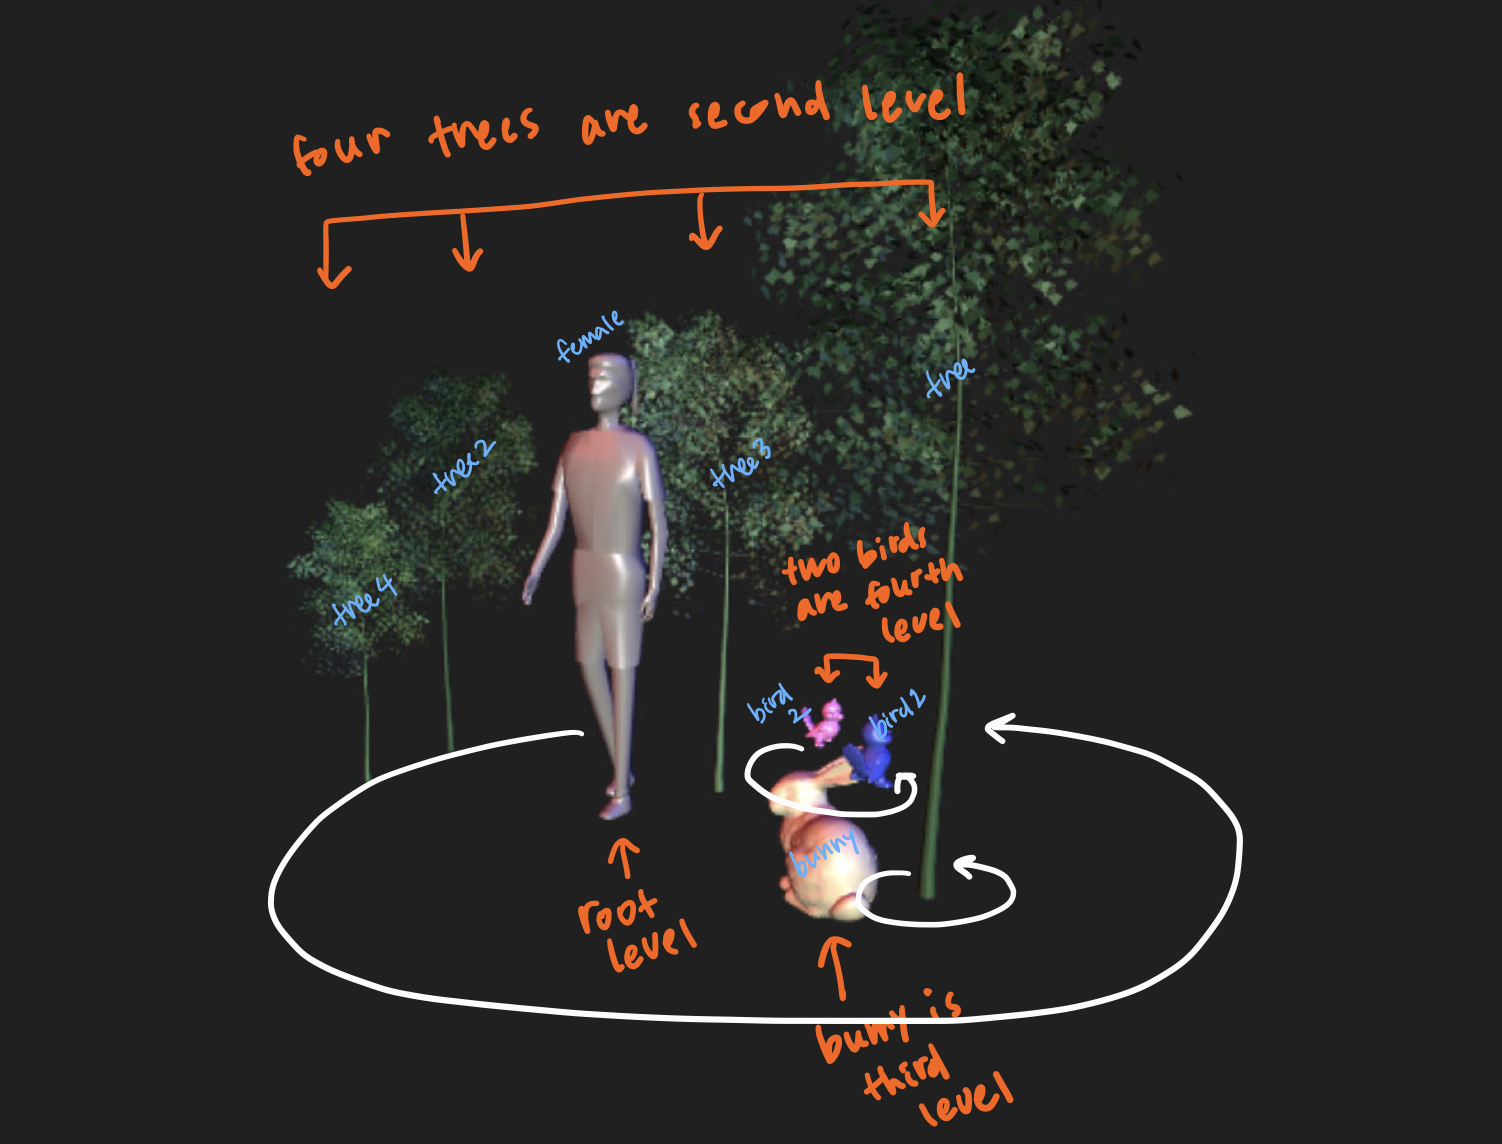 four trees are second level
female
tree
tree2
tree3
tree4
two birds
are fourth
level
bird
2
bird2
bunny
root
level
bunny is
third
level